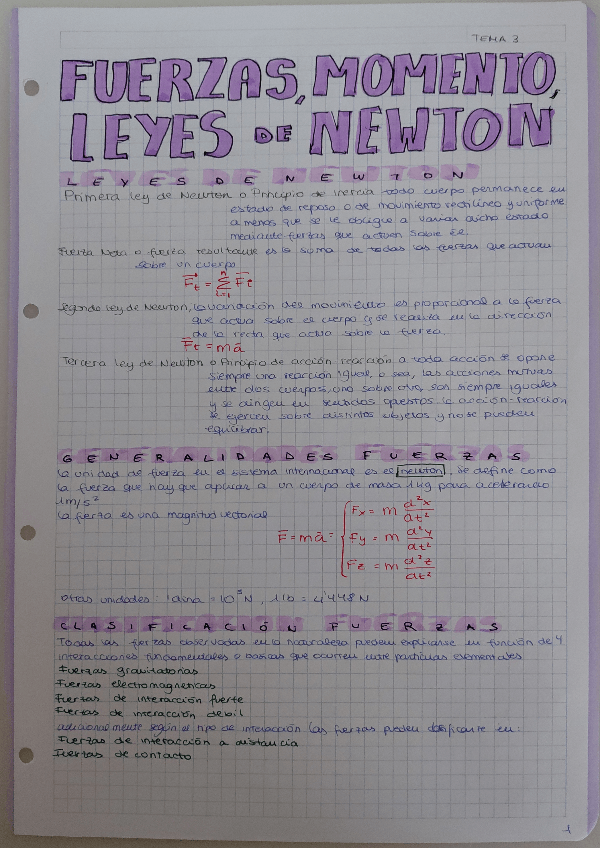 TEMA 3
FUERZAS, MOMENTO,
LEYES DE NEWTON
LEYES DE NEWTON
Primera ley de Newton o Principio de Inercia todo cuerpo permanece en
estado de reposo o de movimiento rectilíneo y uniforme
a menos que se le obligue a variar dicho estado
mediante fuerzas que actuen sobre él.
Fuerza Neta o fuerza resultante es la suma de todas las fuerzas que actuan
sobre un cuerpo
F⃗t = Σ(i=1, n) F⃗i
Segunda ley de Newton, la variación del movimiento es proporcional a la fuerza
que actua sobre el cuerpo y se realiza en la dirección
de la recta que actua sobre la fuerza.
F̄t = mā
Tercera ley de Newton o Principio de acción reacción a toda acción se opone
siempre una reacción igual, o sea, las acciones mutuas
entre dos cuerpos, uno sobre otro, son siempre iguales
y se dirigen en sentidos opuestos la acción-reacción
se ejercen sobre distintos objetos y no se pueden
equilibrar.
GENERALIDADES FUERZAS
la unidad de fuerza en el sistema internacional es el newton, se define como
la fuerza que hay que aplicar a un cuerpo de masa 1kg para acelerarlo
1m/s²
la fuerza es una magnitud vectorial
F̄ = mā =
Fx = m d²x/dt²
Fy = m d²y/dt²
Fz = m d²z/dt²
otras unidades: 1dina = 10⁵N, 1lb = 4'448N
CLASIFICACIÓN FUERZAS
Todas las fuerzas observadas en la naturaleza pueden explicarse en función de 4
interacciones fundamentales o basicas que ocurren entre particulas elementales
Fuerzas gravitatorias
Fuerzas electromagneticas
Fuerzas de interacción fuerte
Fuerzas de interacción debil
adicionalmente según el tipo de interacción las fuerzas pueden clasificarse en:
Fuerzas de interacción a distancia
Fuerzas de contacto
1